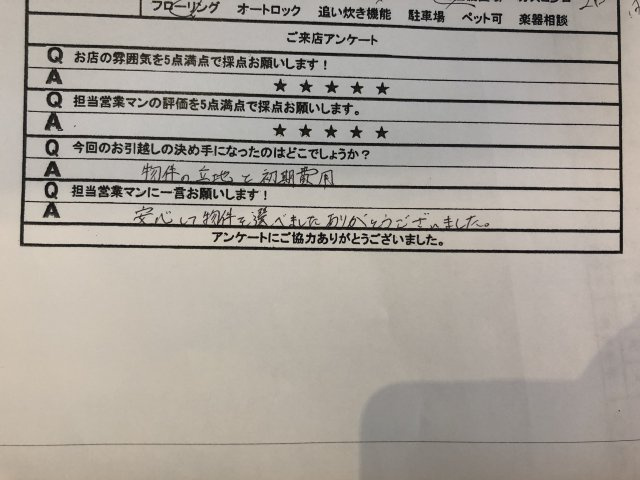 フローリング オートロック 追い炊き機能 駐車場 ペット可 楽器相談
ご来店アンケート
Q お店の雰囲気を5点満点で採点お願いします！
A ★ ★ ★ ★ ★
Q 担当営業マンの評価を5点満点で採点お願いします。
A ★ ★ ★ ★ ★
Q 今回のお引越しの決め手になったのはどこでしょうか？
A 物件の立地と初期費用
Q 担当営業マンに一言お願いします！
A 安心して物件を選べましたありがとうございました。
アンケートにご協力ありがとうございました。